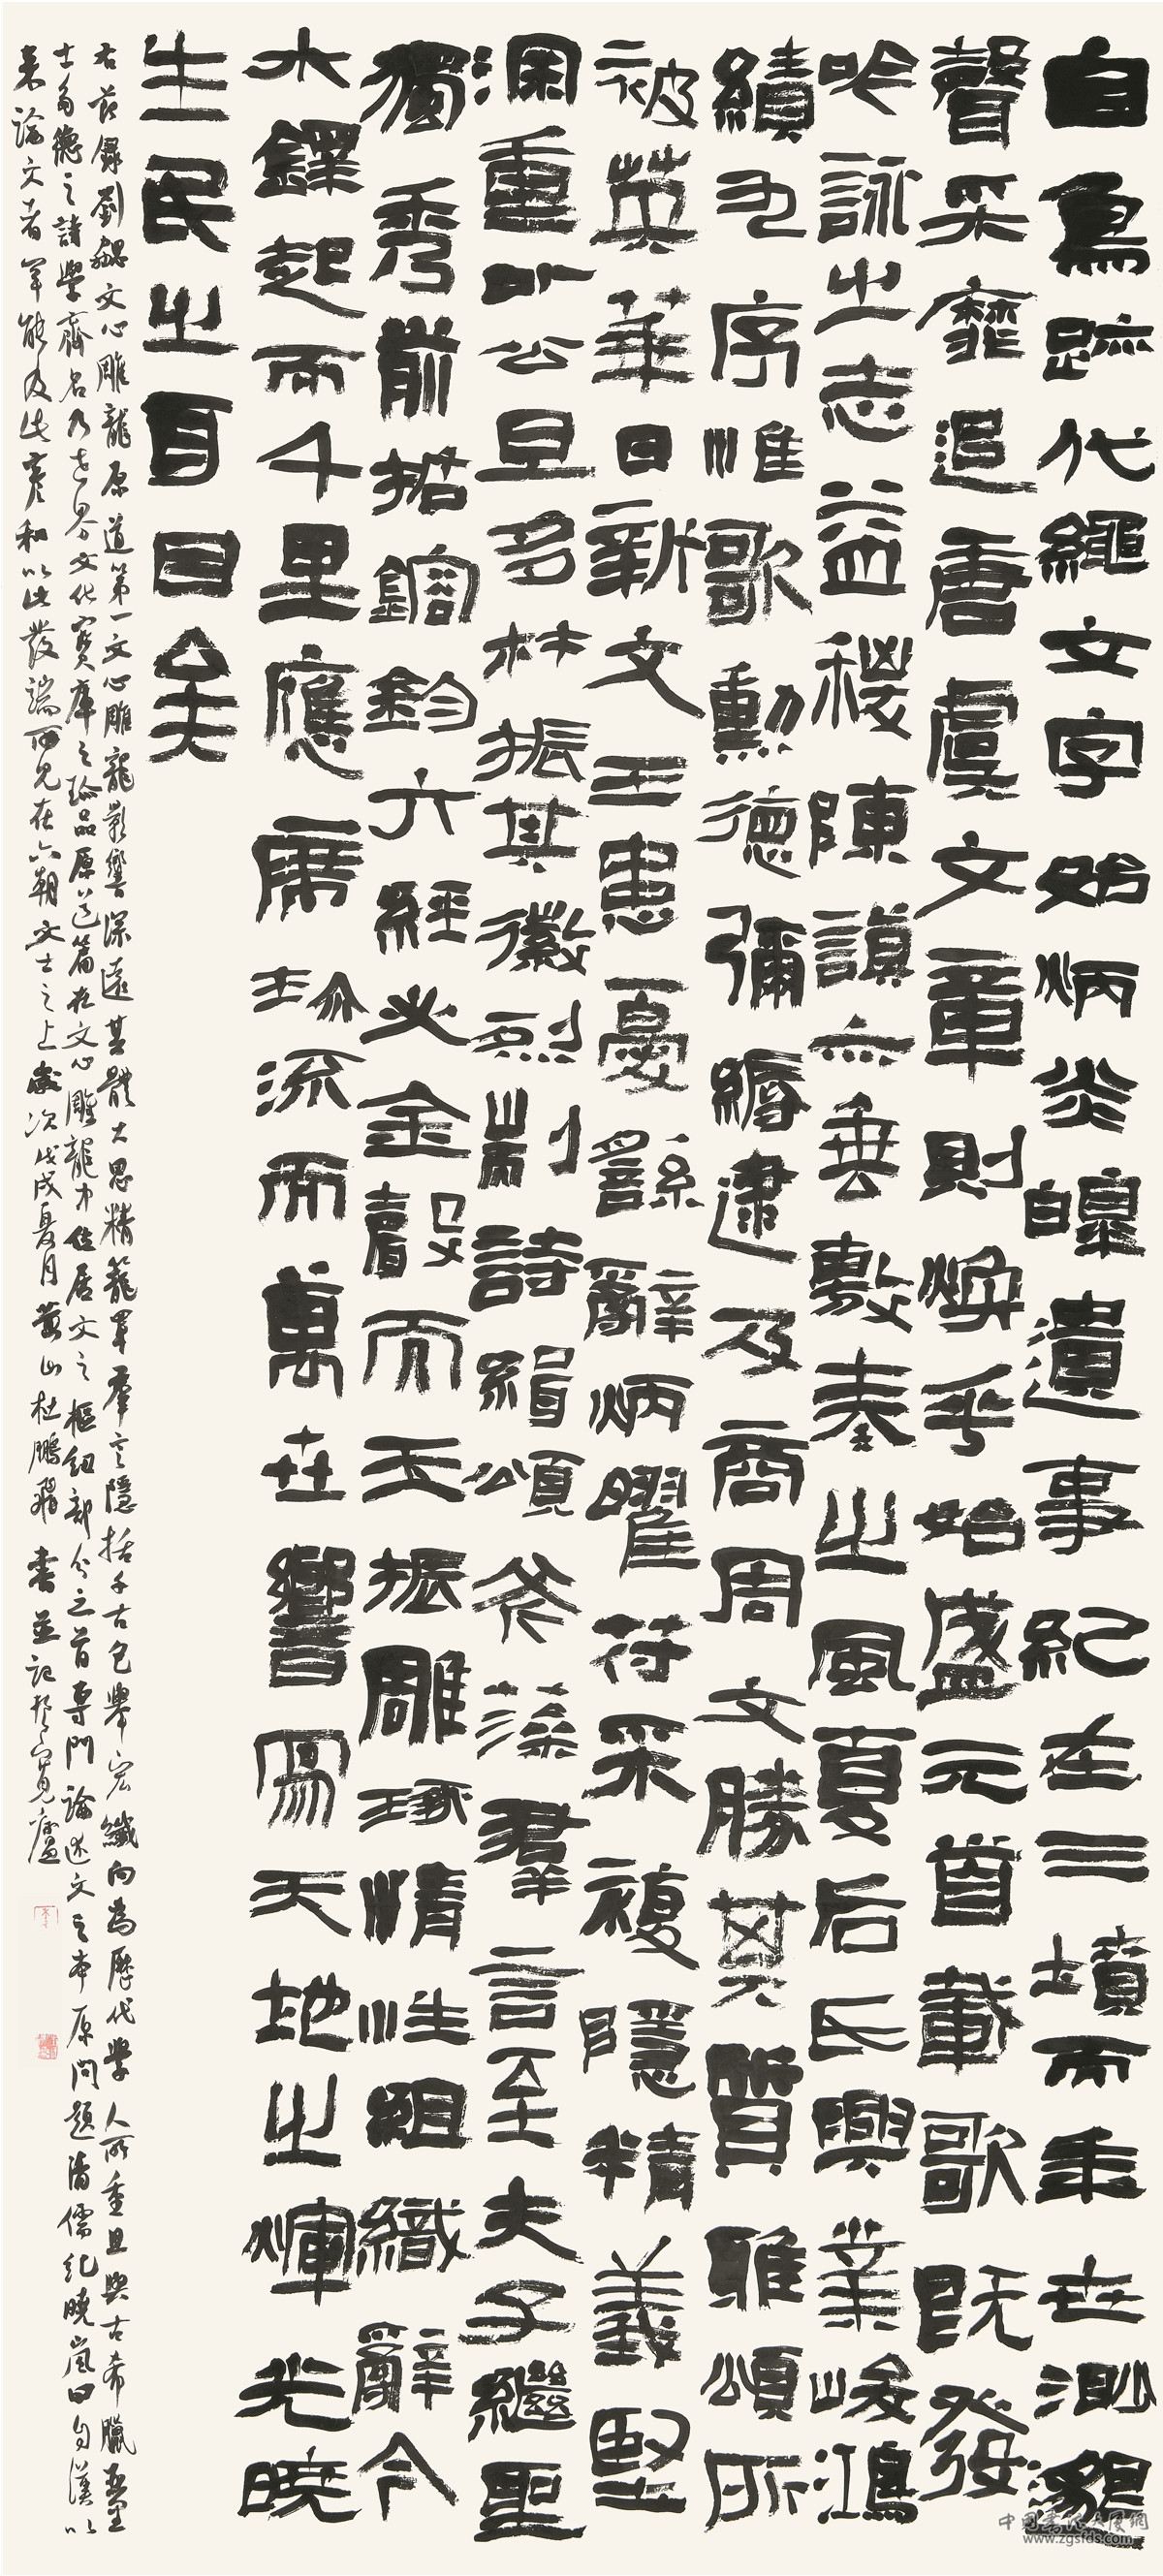 自鳥跡代繩文字始炳炎皞遺事紀在三墳而年世渺邈
聲采靡追唐虞文章則煥乎始盛元首載歌既發
吟詠之志益稷陳謨亦垂敷奏之風夏后氏興業峻鴻
績九序惟歌勳德彌縟逮及商周文勝其質雅頌所
被英華日新文王患憂繇辭炳曜符采複隱精義堅
深重以公旦多材振其徽烈剬詩緝頌斧藻羣言至夫子繼聖
獨秀前哲鎔鈞六經必金聲而玉振雕琢情性組織辭令
木鐸起而千里應席珍流而萬世響寫天地之輝光曉
生民之耳目矣
右節錄劉勰文心雕龍原道第一文心雕龍影響深遠其體大思精籠罩羣言隱括千古包舉宏纖向為歷代學人所重且與古希臘亞里
士多德之詩學齊名乃世界文化寶庫之珍品原道篇在文心雕龍中位居文之樞紐部分之首專門論述文之本原問題清儒紀曉嵐曰自漢以
來論文者罕能及此彥和以此發端所見在六朝文士之上歲次戊戌夏月黃山杜鵬飛書並記於寬廬
www.zgsfds.com